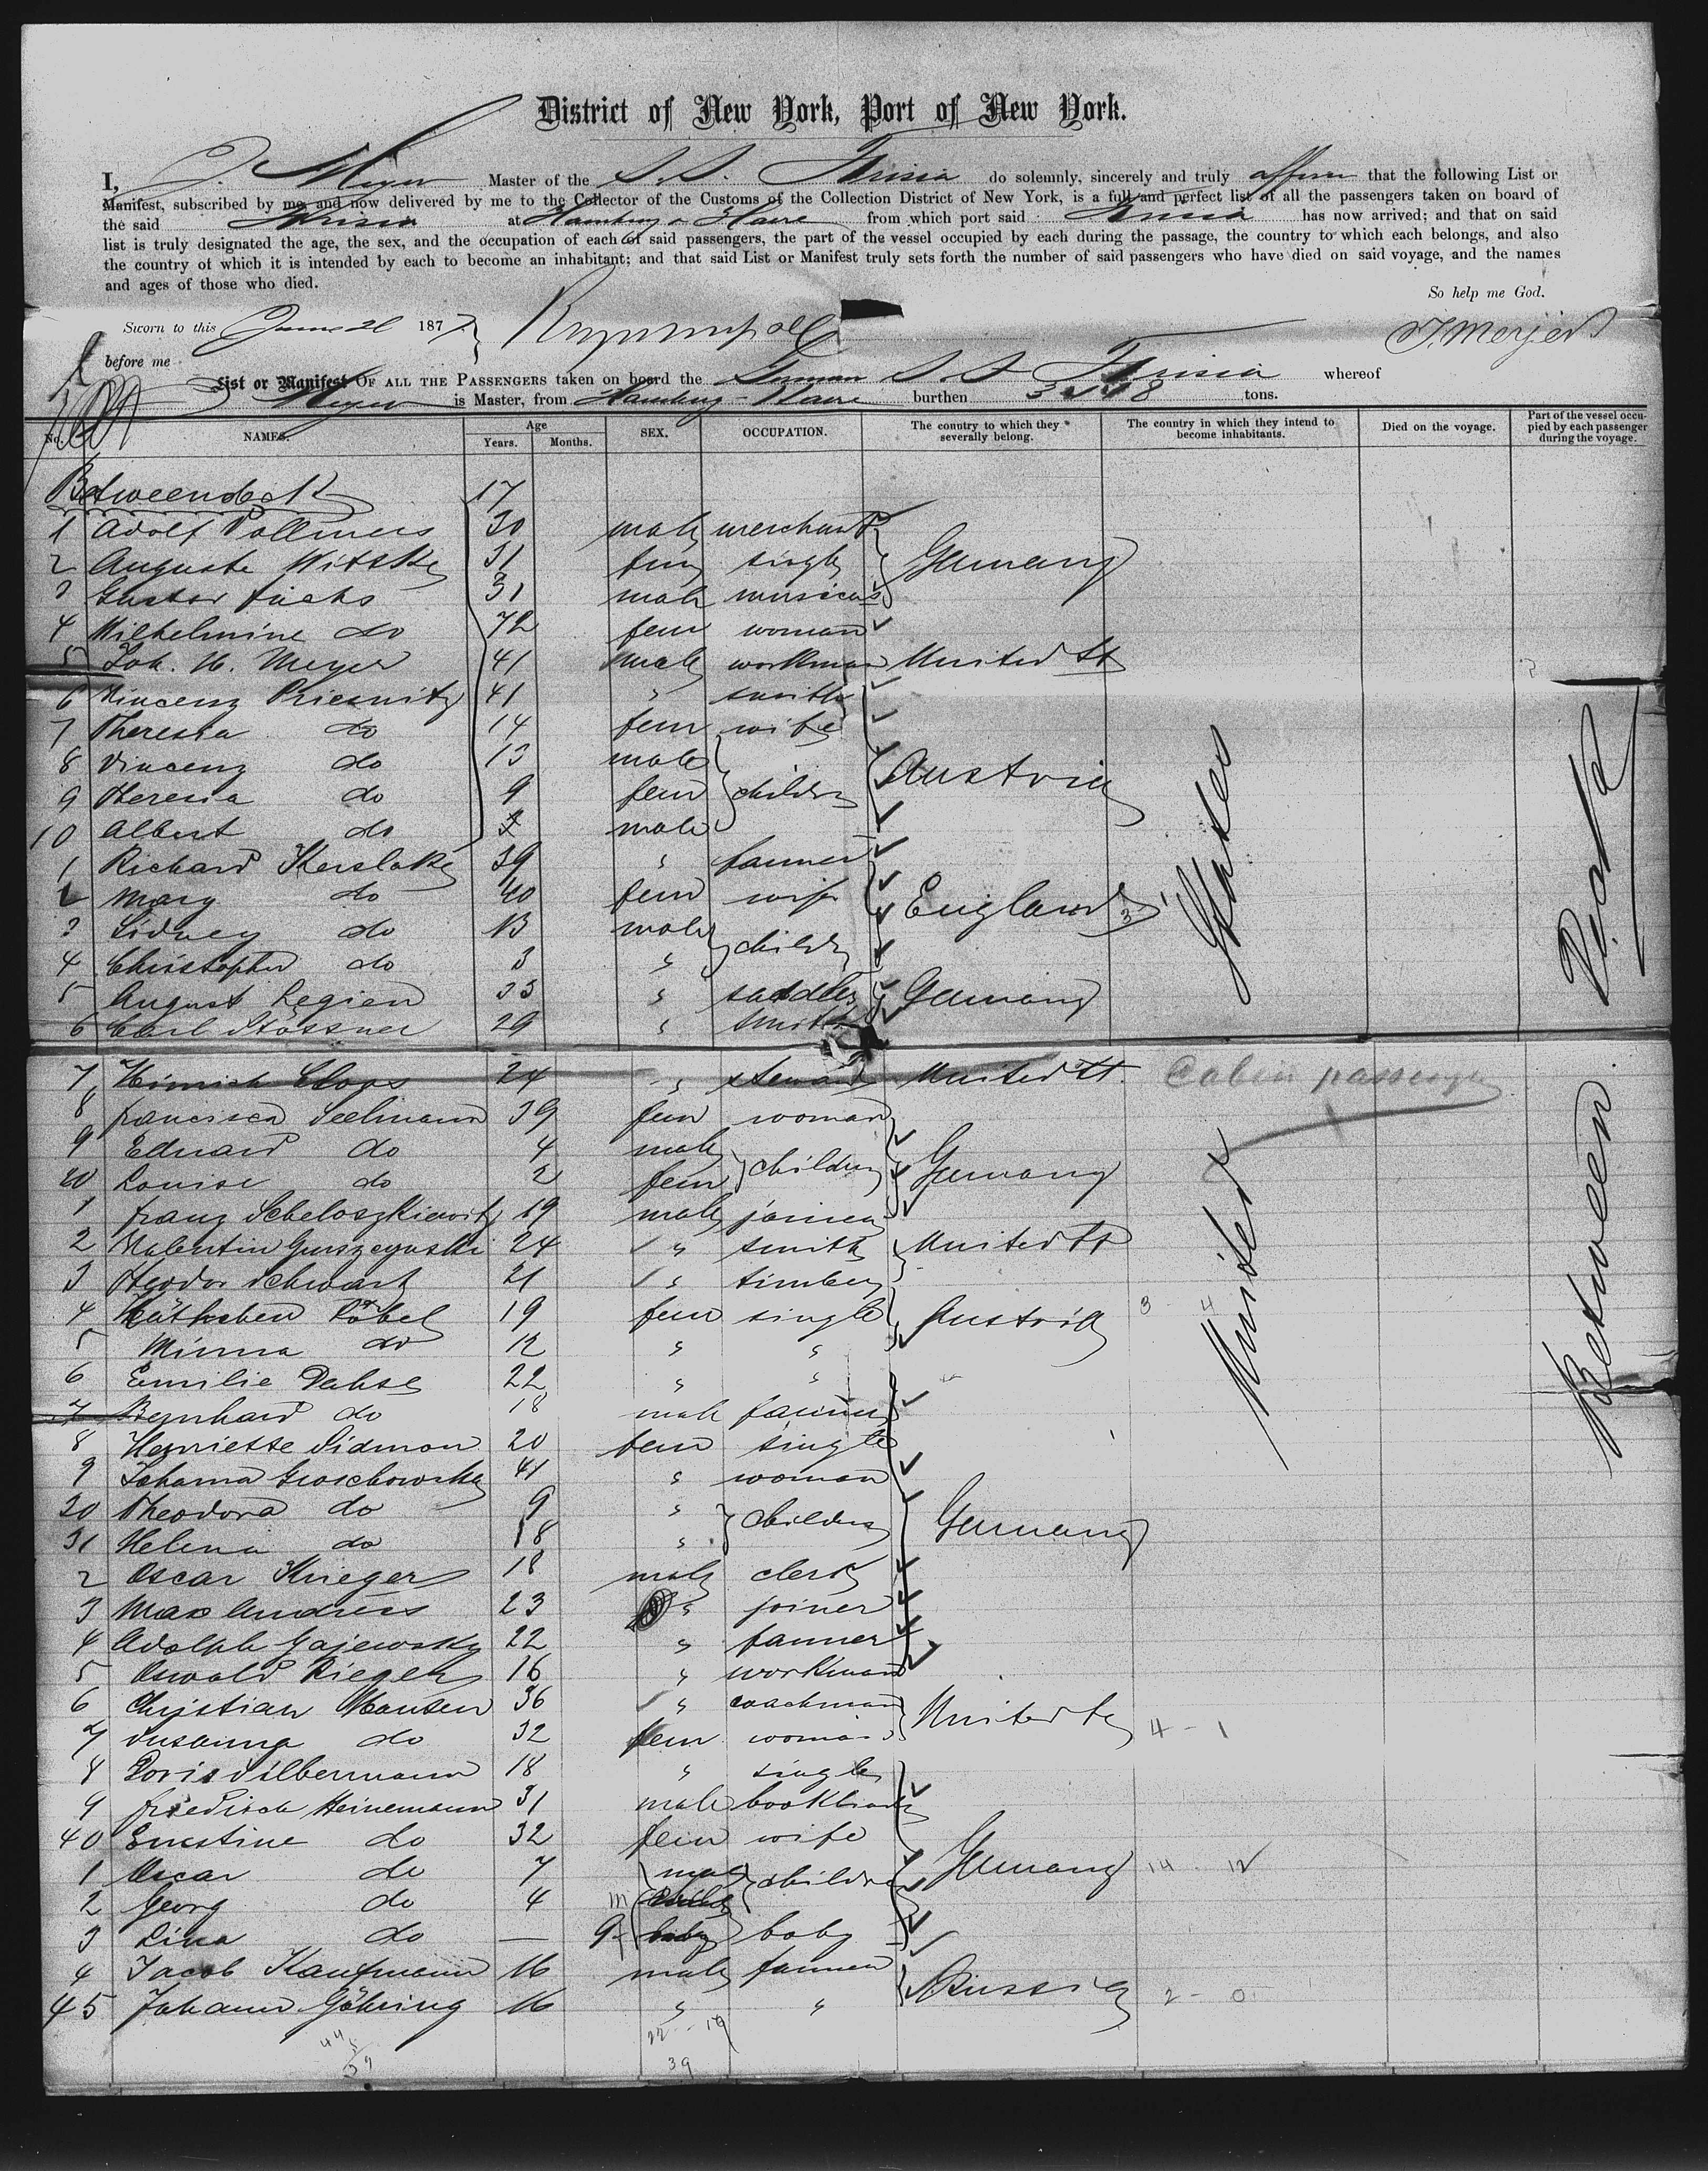 District of New York, Port of New York.
I, J. Meyer Master of the S.S. Frisia do solemnly, sincerely and truly affirm that the following List or
Manifest, subscribed by me, and now delivered by me to the Collector of the Customs of the Collection District of New York, is a full and perfect list of all the passengers taken on board of
the said Frisia at Hamburg & Havre from which port said Frisia has now arrived; and that on said
list is truly designated the age, the sex, and the occupation of each of said passengers, the part of the vessel occupied by each during the passage, the country to which each belongs, and also
the country of which it is intended by each to become an inhabitant; and that said List or Manifest truly sets forth the number of said passengers who have died on said voyage, and the names
and ages of those who died.
So help me God.
Sworn to this June 20 1877
J. Meyer
before me
List or Manifest OF ALL THE PASSENGERS taken on board the German S.S. Frisia whereof
Meyer is Master, from Hamburg - Havre burthen tons.
No. NAMES. Age Years. Months. SEX. OCCUPATION. The country to which they severally belong. The country in which they intend to become inhabitants. Died on the voyage. Part of the vessel occupied by each passenger during the voyage.
Betweendeck 17
1 Adolf Vollmers 30 male merchant
2 Auguste Witzke 31 fem single Germany
3 Gustav Fuchs 31 male musicus
4 Wilhelmine do 72 fem woman
5 Joh. H. Meyer 41 male workman United St
6 Vincenz Priesnitz 41 " smith
7 Theresia do 14 fem wife
8 Vincenz do 13 male
9 Theresia do 9 fem children Austria
10 Albert do male
1 Richard Kerslake 39 " farmer
2 Mary do 40 fem wife England
3 Sidney do 13 male
4 Christopher do 3 " childr
5 August Regien 33 " saddler Germany
6 Carl Stössner 29 " smith
7 Hinrich Clops 24 " steward United St. Cabin passenger
8 Francisca Seelmann 39 fem woman
9 Eduard do 4 male
20 Louise do 2 fem children Germany
1 Franz Scheloszkiewitz 19 male joiner
2 Valentin Gurszeynski 24 " smith United St
3 Theodor Schwarz 21 "
4 Käthchen Löbel 19 fem single Austria
5 Minna do 12 " "
6 Emilie Dahse 22 " "
7 Bernhard do 18 male farmer
8 Henriette Sidmon 20 fem single
9 Johanna Groschowska 41 " woman
30 Theodora do 9 " children
31 Helena do 8 " Germany
2 Oscar Krieger 18 male clerk
3 Max Andress 23 " joiner
4 Adolph Gajewsky 22 " farmer
5 Oswald Rieger 16 " workman
6 Christian Hansen 36 " coachman United St
7 Susanna do 32 fem woman 4 - 1
8 Doris Silbermann 18 " single
9 Friedrich Heinemann 31 male bookbinder
40 Ernstine do 32 fem wife
1 Oscar do 7 male children Germany 14 - 12
2 Georg do 4 m
3 Lina do — baby
4 Jacob Kaufmann 16 male farmer
45 Johann Göhring 16 " " Russia 2 - 0
United States
Between Deck
22 - 17
39